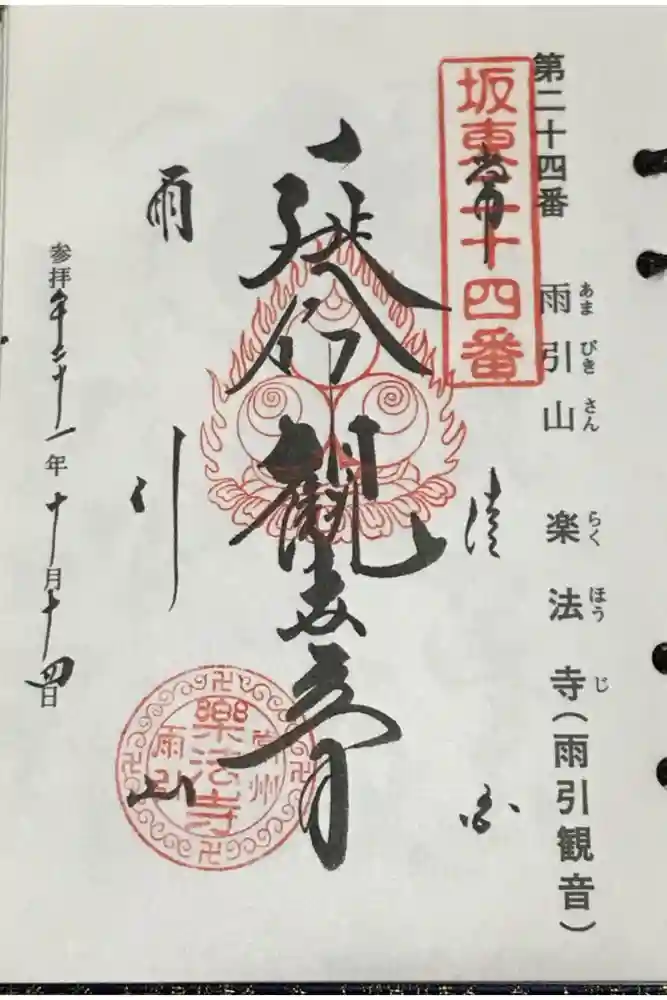 第二十四番 雨引山 楽法寺(雨引観音)
あまびきさん らくほうじ
坂東二十四番
延命観世音
雨引山
常州
樂法寺
雨引
参拝平二十一年十月十四日